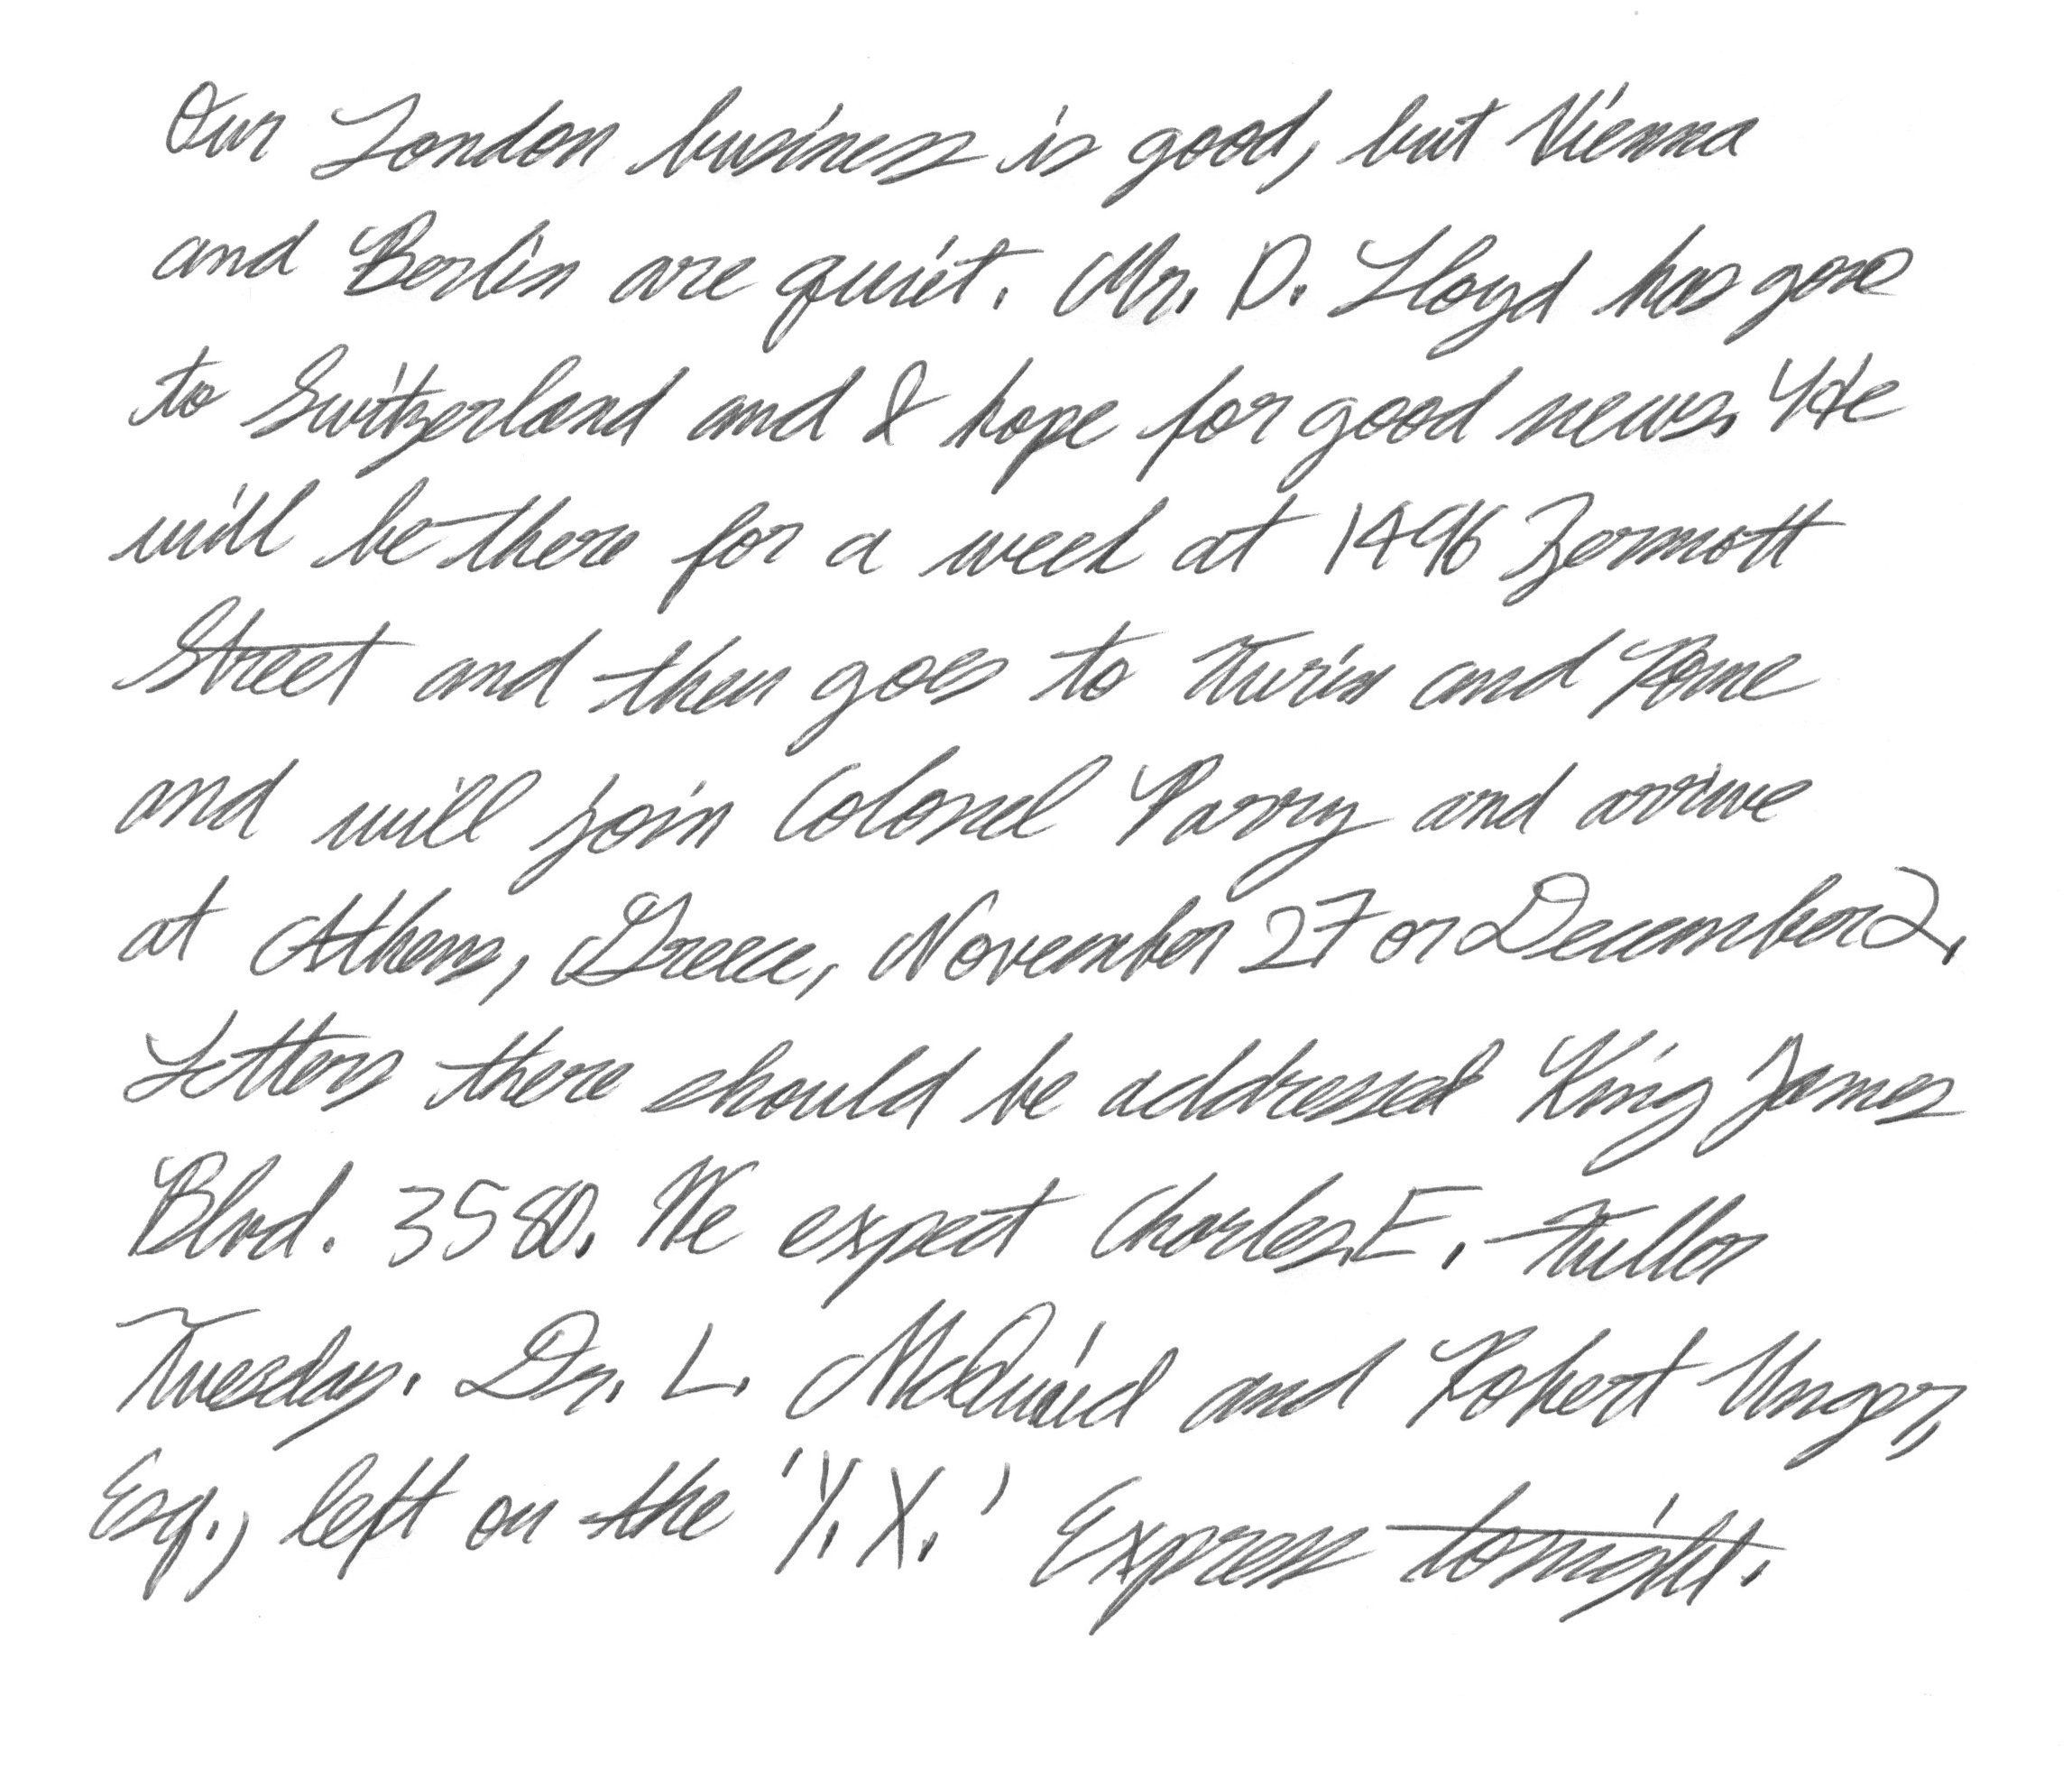 Our London business is good, but Vienna
and Berlin are quiet. Mr. D. Lloyd has gone
to Switzerland and I hope for good news. He
will be there for a week at 1496 Zermott
Street and then goes to Turin and Rome
and will join Colonel Parry and arrive
at Athens, Greece, November 27 or December 2.
Letters there should be addressed King James
Blvd. 3580. We expect Charles E. Fuller
Tuesday. Dr. L. McQuaid and Robert Unger,
Esq., left on the 'Y.X.' Express tonight.